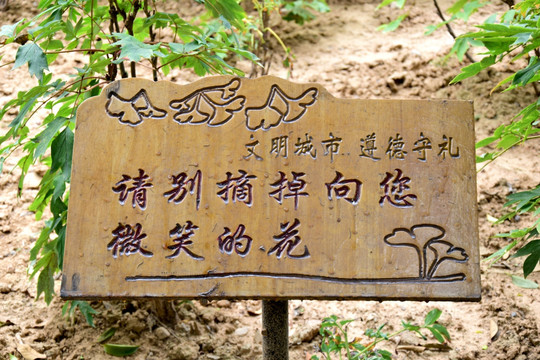 文明城市 遵德守礼
请别摘掉向您
微笑的花